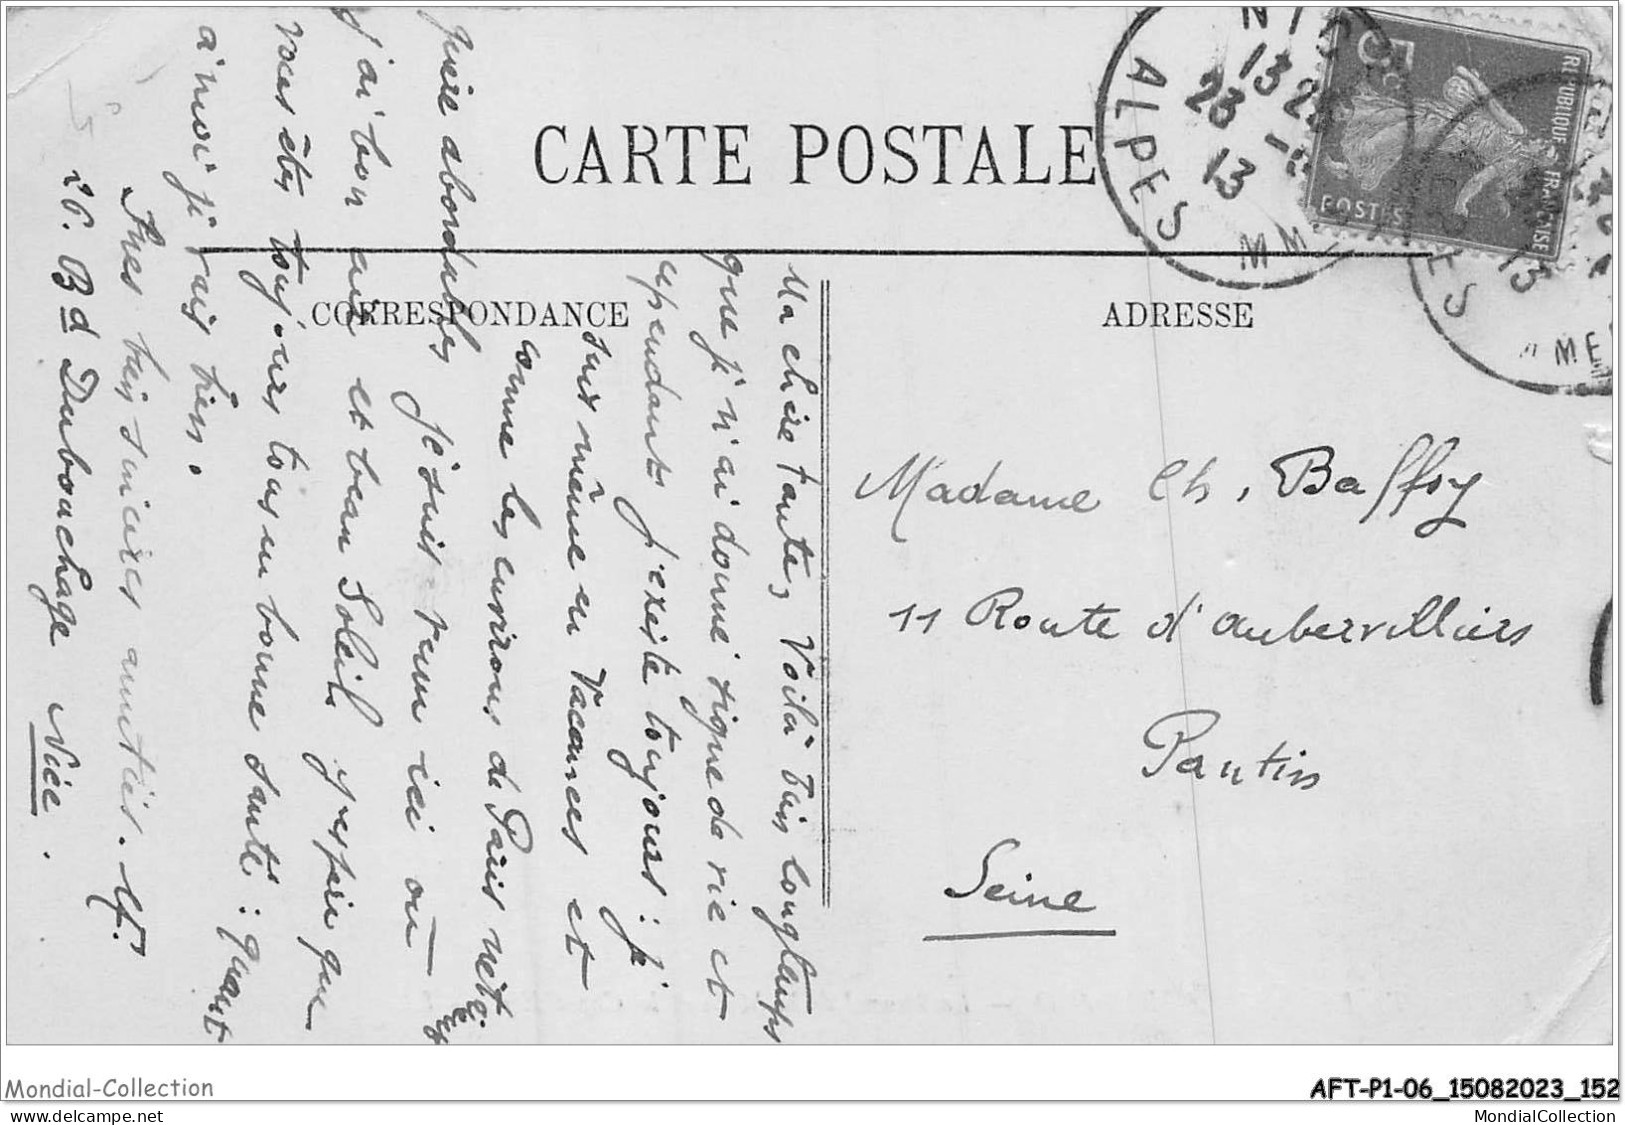 CARTE POSTALE
CORRESPONDANCE
ADRESSE
NICE
13 25
23 -
13
ALPES MMES
REPUBLIQUE FRANÇAISE
POSTES
5c
13
AMES
Madame Ch. Baffoy
11 Route d'Aubervilliers
Pantin
Seine
Ma chère tante, Voilà bien longtemps
que je n'ai donné signe de vie et
cependant j'existe toujours : je
suis même en Vacances et
comme les environs de Paris n'étai
guère abordables je suis venu ici où
j'ai bon air et beau Soleil j'espère que
vous êtes toujours tous en bonne santé : quant
à moi je vais bien.
Mes bien sincères amitiés.
26. Bd Dubouchage Nice.
Mondial-Collection
AFT-P1-06_15082023_152
www.delcampe.net
MondialCollection